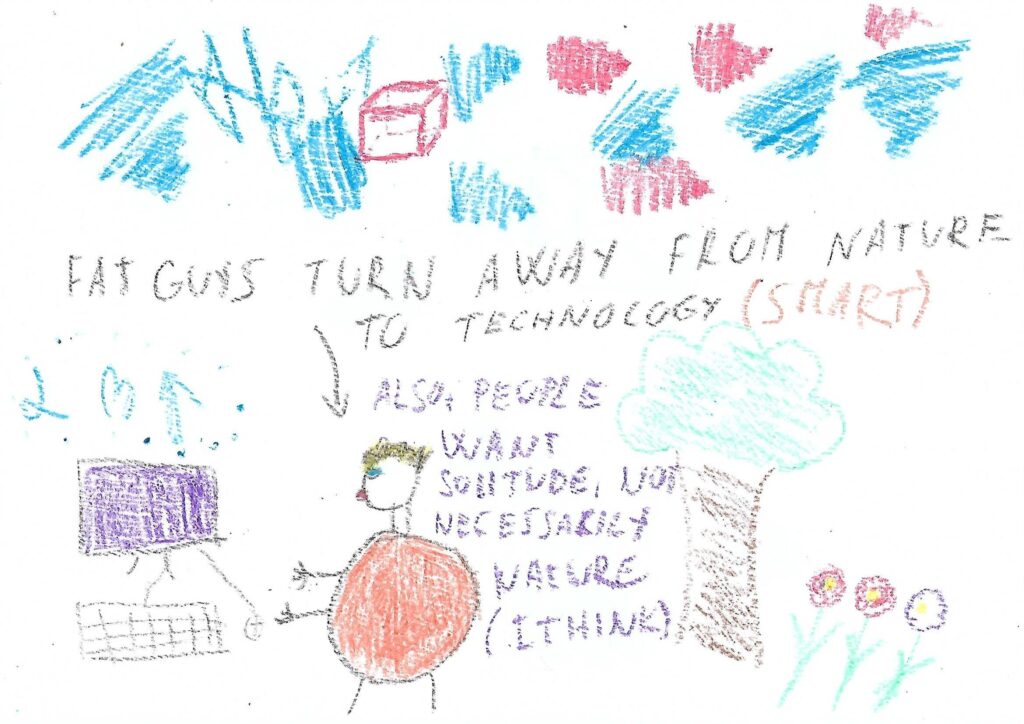 FAT GUYS TURN AWAY FROM NATURE
TO TECHNOLOGY (SMART)
ALSO, PEOPLE
WANT
SOLITUDE, NOT
NECESSARILY
NATURE
(I THINK)